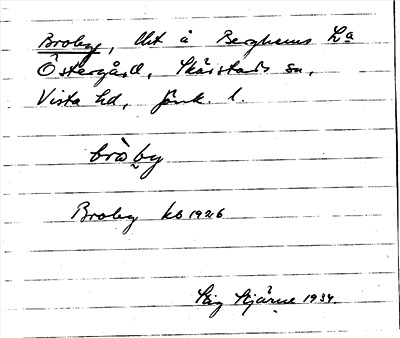 Broby, lht å Berghems La
Östergård, Skärstads sn,
Vista hd, Jönk. l.
bròby
Broby kb 1926
Stig Stjärne 1934.